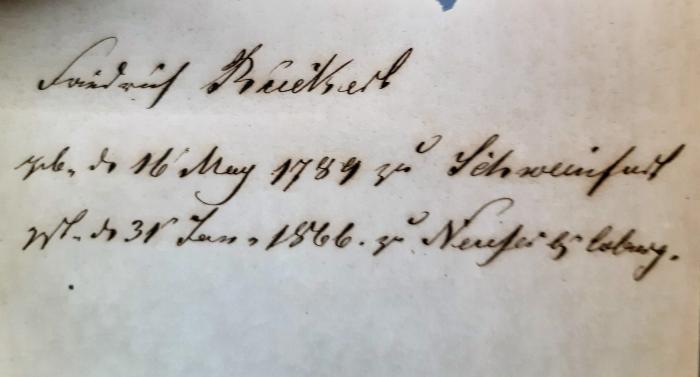 Friedrich Rückert
geb. d. 16 May 1789 zu Schweinfurt
gst. d. 31 Jan. 1866. zu Neuses by Coburg.